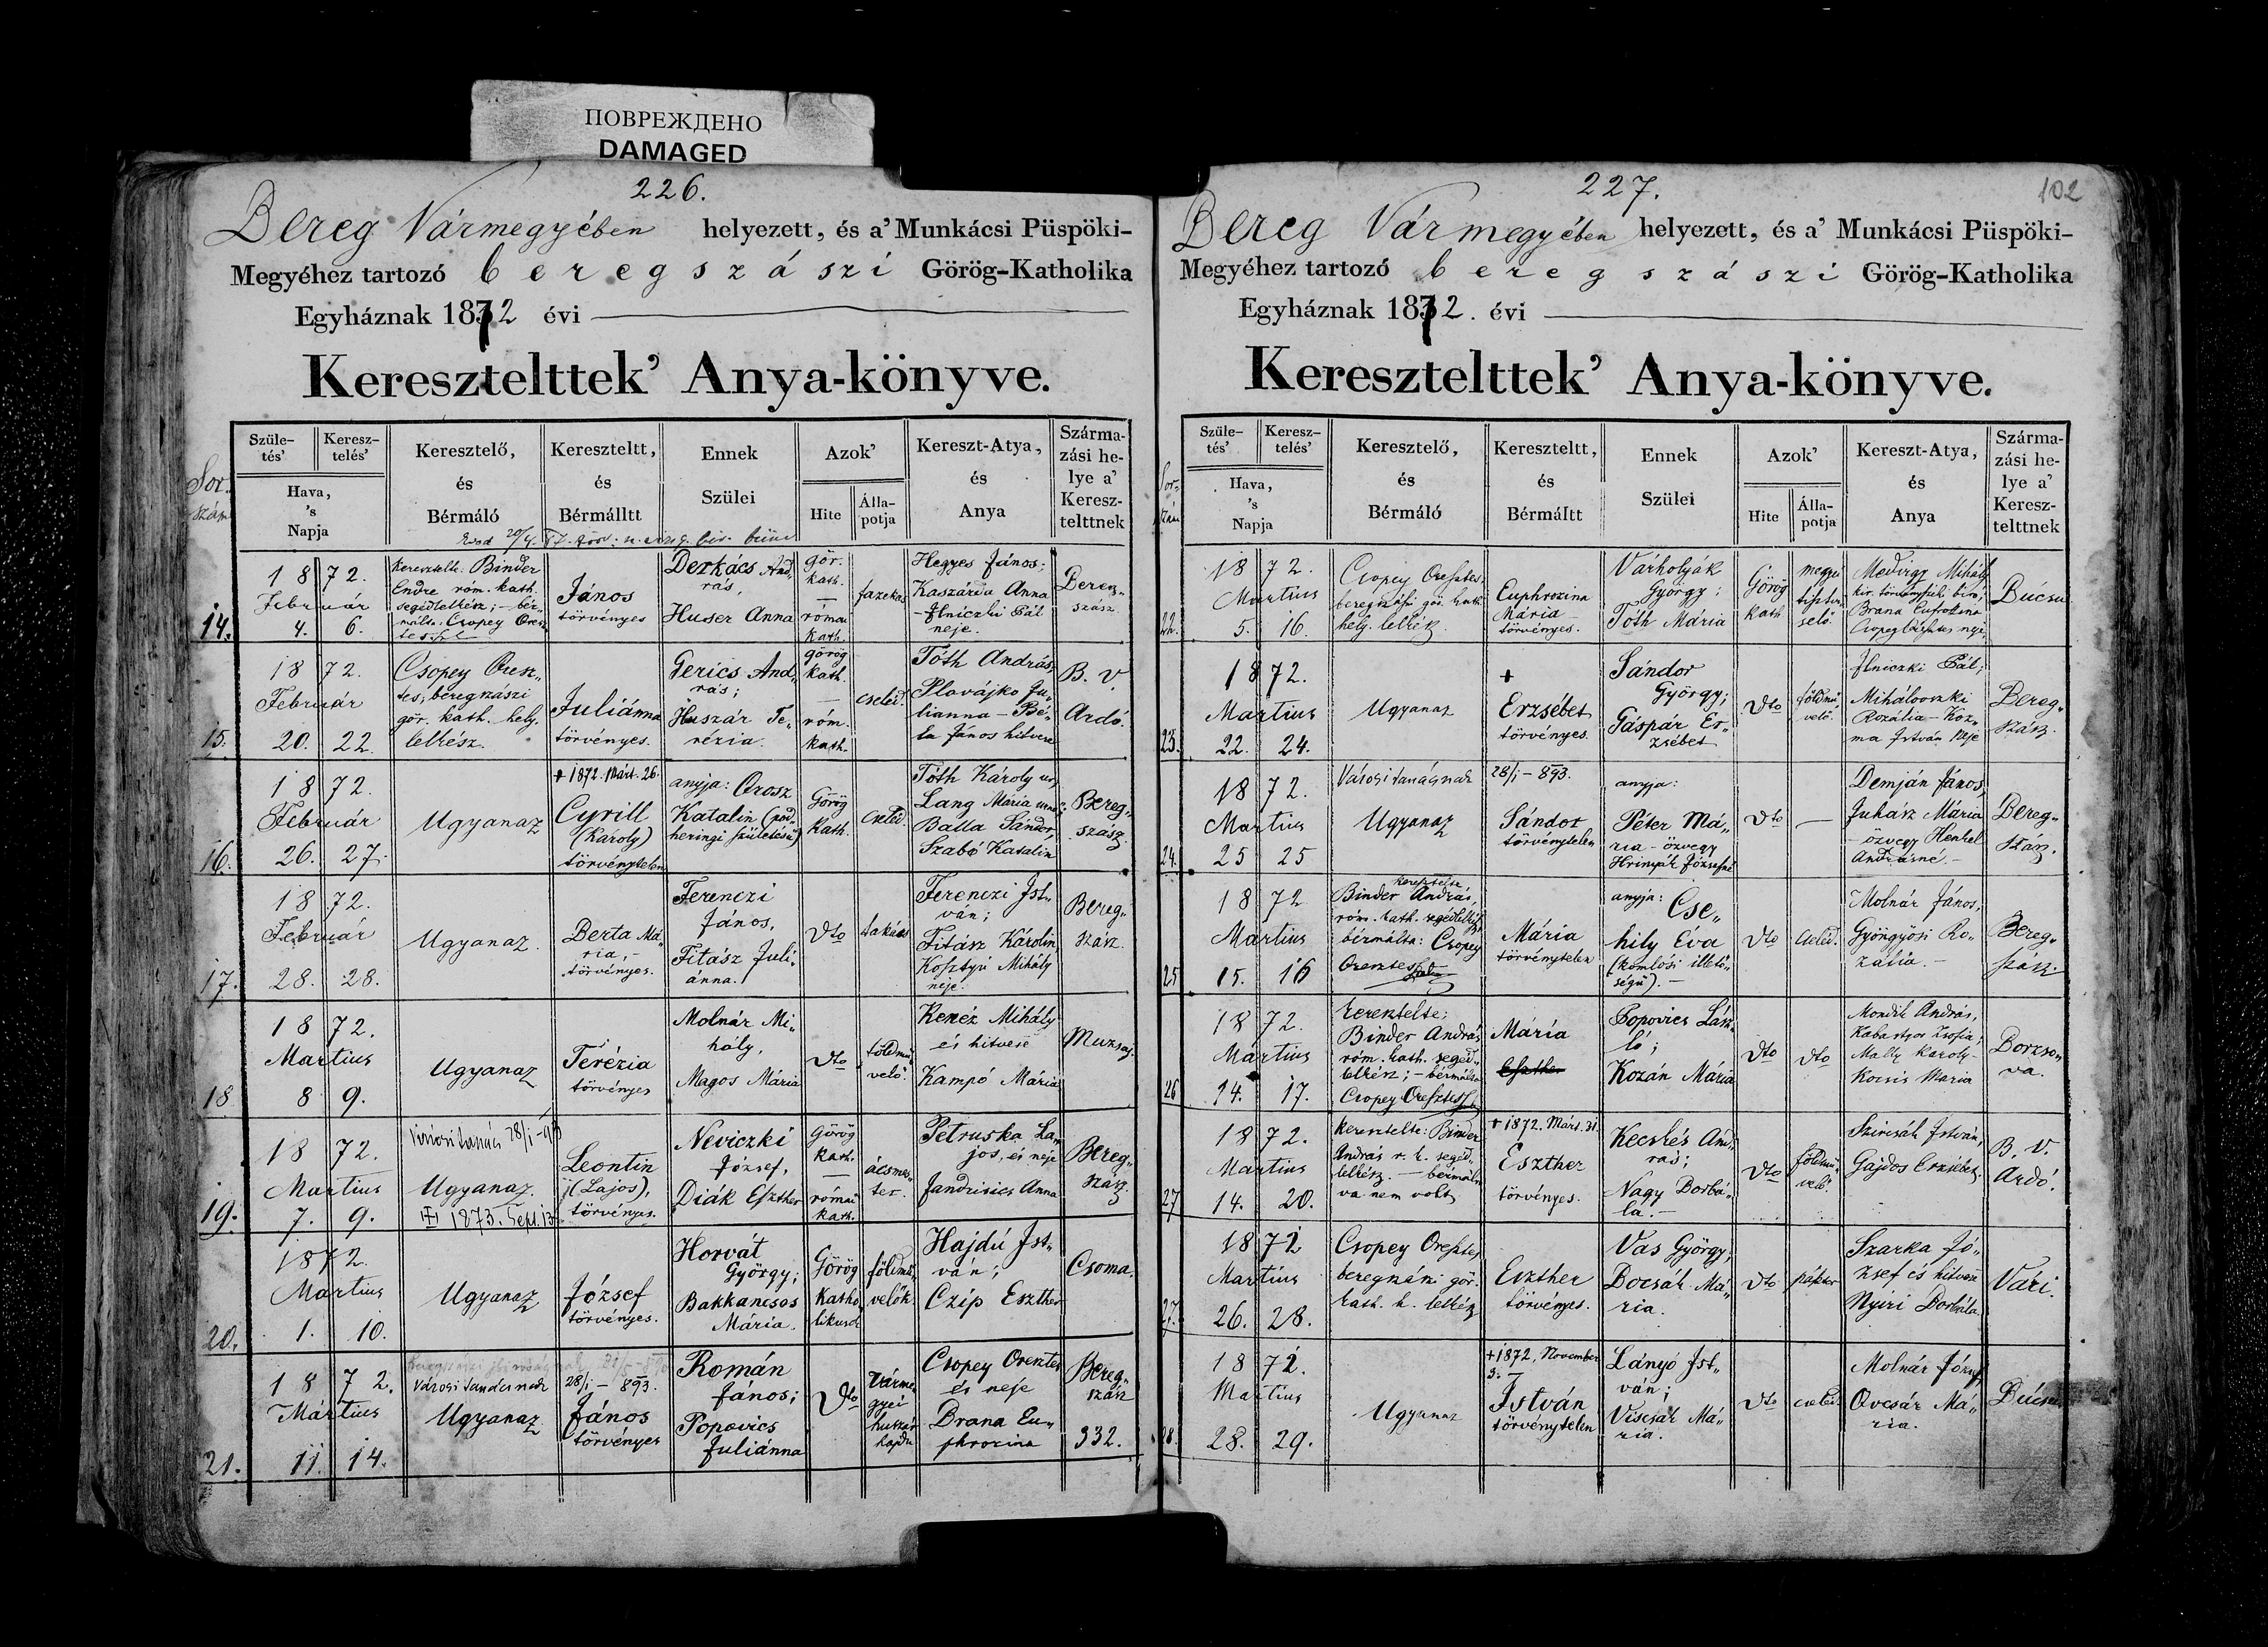 ПОВРЕЖДЕНО
DAMAGED
226.
Bereg Vármegyében helyezett, és a' Munkácsi Püspöki-
Megyéhez tartozó beregszászi Görög-Katholika
Egyháznak 1872 évi
Keresztelttek' Anya-könyve.
Sor. szám
Szüle-
tés'
Keresz-
telés'
Hava,
's
Napja
Keresztelő,
és
Bérmáló
Kereszteltt,
és
Bérmálltt
Ennek
Szülei
Azok'
Hite
Álla-
potja
Kereszt-Atya,
és
Anya
Szárma-
zási he-
lye a'
Keresz-
telttnek
14.
1872.
Február
4. 6.
keresztelte: Binder
Endre róm. kath.
segédlelkész; - bér-
málta: Csopey Oresz
János
törvényes
Derkács And„
rás,
Huser Anna
gör.
kath.
—
római
kath.
fazekas
Hegyes János;
Kaszárda Anna
- Ilniczki Pál
neje.
Bereg„
szász.
15.
1872.
Február
20. 22.
Csopey Oresz„
tes, beregszászi
gör. kath. hely.
lelkész.
Juliánna
törvényes.
Gerics And„
rás;
Huszár Te„
rézia.
görög
kath.
—
róm.
kath.
cseléd.
Tóth András,
Plovájko Ju„
lianna - Bé„
la János hitvese
B. V.
Ardó.
16.
1872.
Február
26. 27.
Ugyanaz
+ 1872. Márt. 26.
Cyrill
(Károly)
törvénytelen
anyja: Orosz
Katalin (pod„
heringi születésű)
Görög
kath.
cseléd.
Tóth Károly ur,
Lang Mária
Balla Sándor,
Szabó Katalin
Bereg„
szász.
17.
1872.
Február
28. 28.
Ugyanaz.
Berta Má„
ria, -
törvényes.
Ferenczi
János,
Fitász Juli„
ánna.
dto
takács
Ferenczi Ist„
ván;
Fitász Károlin
Kosztyú Mihály
neje.
Bereg„
szász.
18
1872.
Martius
8 9.
Ugyanaz
Terézia
törvényes
Molnár Mi„
hály,
Magos Mária
dto
földmű„
velő.
Kenéz Mihály
és hitvese
Kampó Mária
Muzsaj.
19.
1872.
Martius
7. 9.
Városi tanács 28/i - 93
Ugyanaz.
1873. Sept. 13
Leontin
(Lajos),
törvényes.
Neviczki
József,
Diák Eszther
Görög
kath.
—
római
kath.
ácsmes„
ter.
Petruska La„
jos, és neje
Jandrisics Anna
Bereg„
szász.
20.
1872.
Martius
1. 10.
Ugyanaz
József
törvényes.
Horvát
György;
Bakkancsos
Mária.
Görög
katho„
likusok
földmű„
velők.
Hajdú Ist„
ván;
Czip Eszther
Csoma.
21.
1872.
Mártius
11. 14.
Városi tanácsnak
Ugyanaz.
28/i - 893.
János
törvényes
Román
János;
Popovics
Juliánna
dto
Várme„
gyei
huszár
hajdu
Csopey Oresztes
és neje
Brana Eu„
phrozina
Bereg„
szász
332.
227.
102
Bereg Vármegyében helyezett, és a' Munkácsi Püspöki-
Megyéhez tartozó beregszászi Görög-Katholika
Egyháznak 1872. évi
Keresztelttek' Anya-könyve.
Sor-
szám
Szüle-
tés'
Keresz-
telés'
Hava,
's
Napja
Keresztelő,
és
Bérmáló
Kereszteltt,
és
Bérmáltt
Ennek
Szülei
Azok'
Hite
Álla-
potja
Kereszt-Atya,
és
Anya
Szárma-
zási he-
lye a'
Keresz-
telttnek
22.
1872.
Martius
5. 16.
Csopey Oresztes,
beregszászi gör. kath.
hely. lelkész.
Euphrozina
Mária
törvényes.
Várholyák
György;
Tóth Mária
Görög
kath
megyei
tisztvi„
selő.
Medvigy Mihály
kir. törvényszéki biró;
Brana Eufrozina
Csopey Oresztes neje
Búcsu
23.
1872.
Martius
22. 24.
Ugyanaz
+
Erzsébet
törvényes.
Sándor
György;
Gáspár Er„
zsébet
dto
földmű„
velő.
Ilniczki Pál;
Mihálovszki
Rozália - Koz„
ma István neje
Bereg„
szász.
24.
1872.
Martius
25 25
Városi tanácsnak
Ugyanaz
28/i - 893.
Sándor
törvénytelen
anyja:
Péter Má„
ria - özvegy
Hrinyák Józsefné
dto
—
Demján János
Juhász Mária
- özvegy Henkel
Andrásné. -
Bereg„
szász.
25
1872
Martius
15. 16
keresztelte
Binder András,
róm. kath. segédlelkész
bérmálta: Csopey
Oresztes
Mária
törvénytelen
anyja: Cse„
hily Éva
(komlósi illető„
ségű). -
dto
cseléd.
Molnár János,
Gyöngyösi Ro„
zália. -
Bereg„
szász.
26
1872.
Mártius
14. 17.
keresztelte:
Binder András
róm. kath. segéd„
lelkész; - bérmálta
Csopey Oresztes
Mária
Eszther
Popovics Lász„
ló;
Kozán Mária
dto
dto
Mondik András,
Zsofia;
Mally Karoly -
Kocsis Maria
Borzso„
va.
27
1872.
Martius
14. 20.
keresztelte: Binder
András r. k. segéd„
lelkész. - bérmál„
va nem volt
+ 1872. Márt. 31.
Eszther
törvényes.
Kecskés And„
rás;
Nagy Borbá„
la. -
dto
földmű„
velő.
Szivcsák István,
Gajdos Erzsébet.
B. V.
Ardó.
27.
1872
Martius
26. 28.
Csopey Oresztes
beregszászi gör.
kath. h. lelkész
Eszther
törvényes.
Vas György;
Bocsák Má„
ria.
dto
pásztor
Szarka Jó„
zsef és hitvese
Nyiri Borbála.
Vári.
28.
1872.
Martius
28. 29.
Ugyanaz
+ 1872, November
3.
István
törvénytelen
Lányó Ist„
ván;
Viscsák Má„
ria.
dto
cseléd.
Molnár József
Ovcsár Má„
ria.
Búcsu